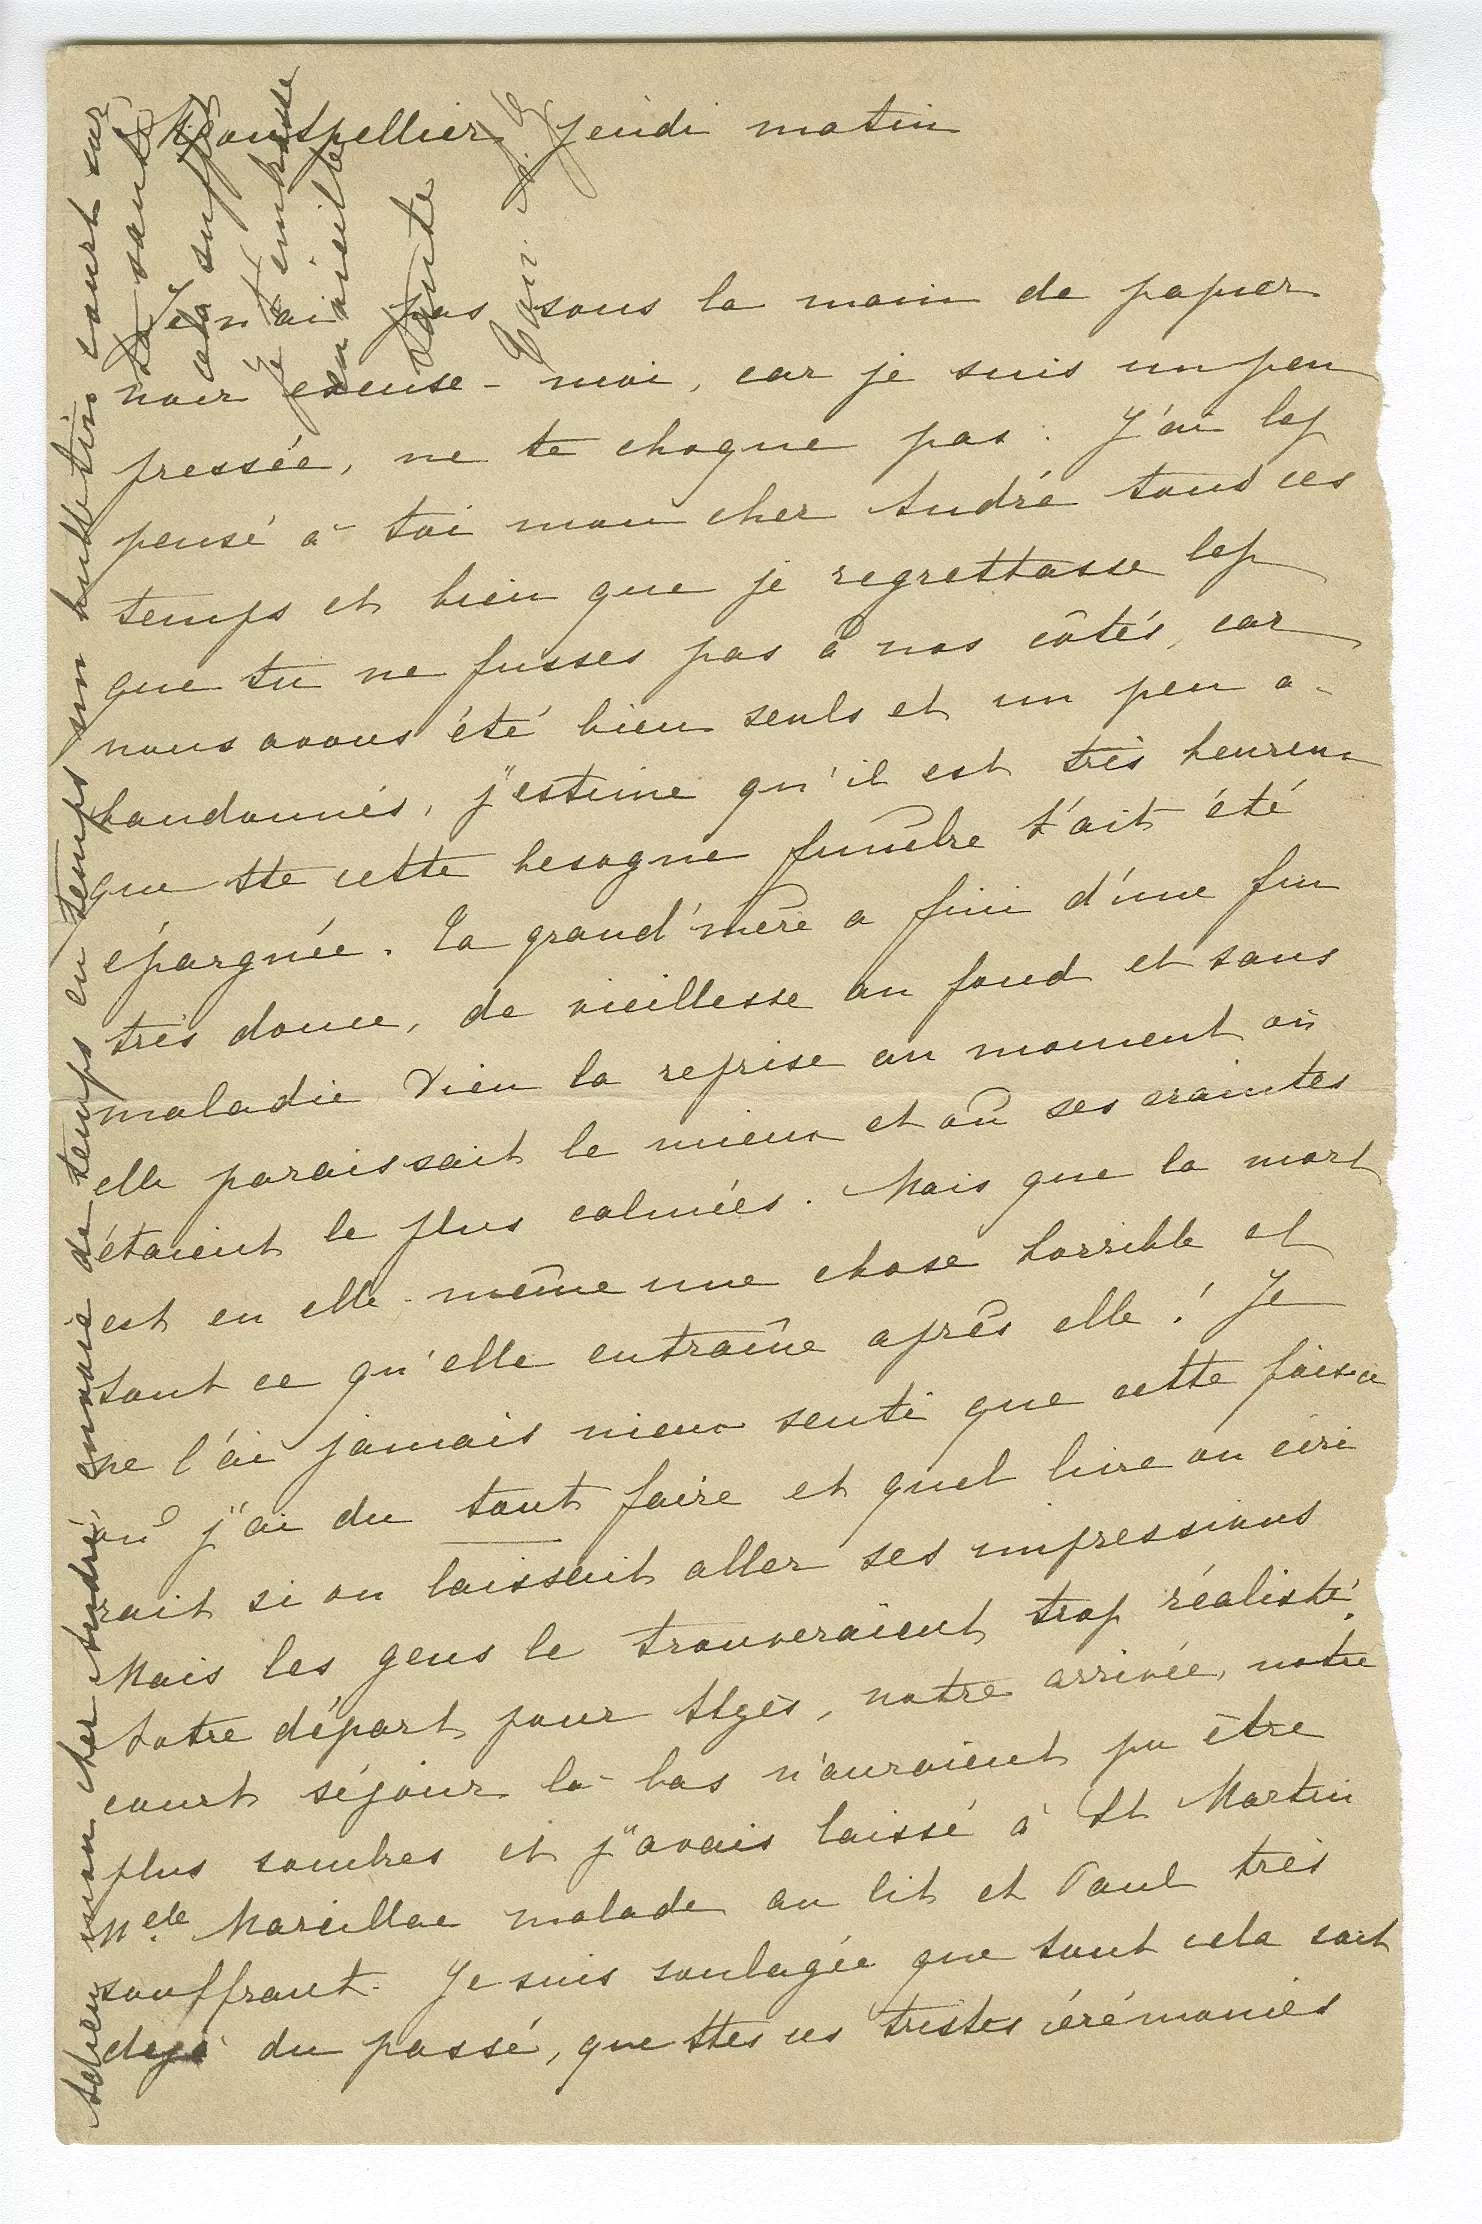 Montpellier jeudi matin
Je n'ai pas sous la main de papier
noir excuse-moi, car je suis un peu
pressée, ne te choque pas. J'ai bcp
pensé à toi mon cher André tous ces
temps et bien que je regrettasse bcp
que tu ne fusses pas à nos côtés, car
nous avons été bien seuls et un peu a-
bandonnés, j'estime qu'il est très heureux
que tte cette besogne funèbre t'ait été
épargnée. Ta grand'mère a fini d'une fin
très douce, de vieillesse au fond et sans
maladie Dieu la reprise au moment où
elle paraissait le mieux et où ses craintes
étaient le plus calmées. Mais que la mort
est en elle-même une chose horrible et
tout ce qu'elle entraîne après elle! Je
ne l'ai jamais mieux senti que cette fois-ci
où j'ai du tout faire et quel livre on écri
rait si on laissait aller ses impressions
Mais les gens le trouveraient trop réaliste!
Notre départ pour Uzès, notre arrivée, notre
court séjour là-bas n'auraient pu être
plus sombres et j'avais laissé à St Martin
Melle Marcillac malade au lit et Paul très
souffrant. Je suis soulagée que tout cela soit
déjà du passé, que ttes ces tristes cérémonies
Adieu mon cher André, envoie de temps en temps un bulletin court sur
ta santé
cela suffira
Je t'embrasse
ta vieille
tante